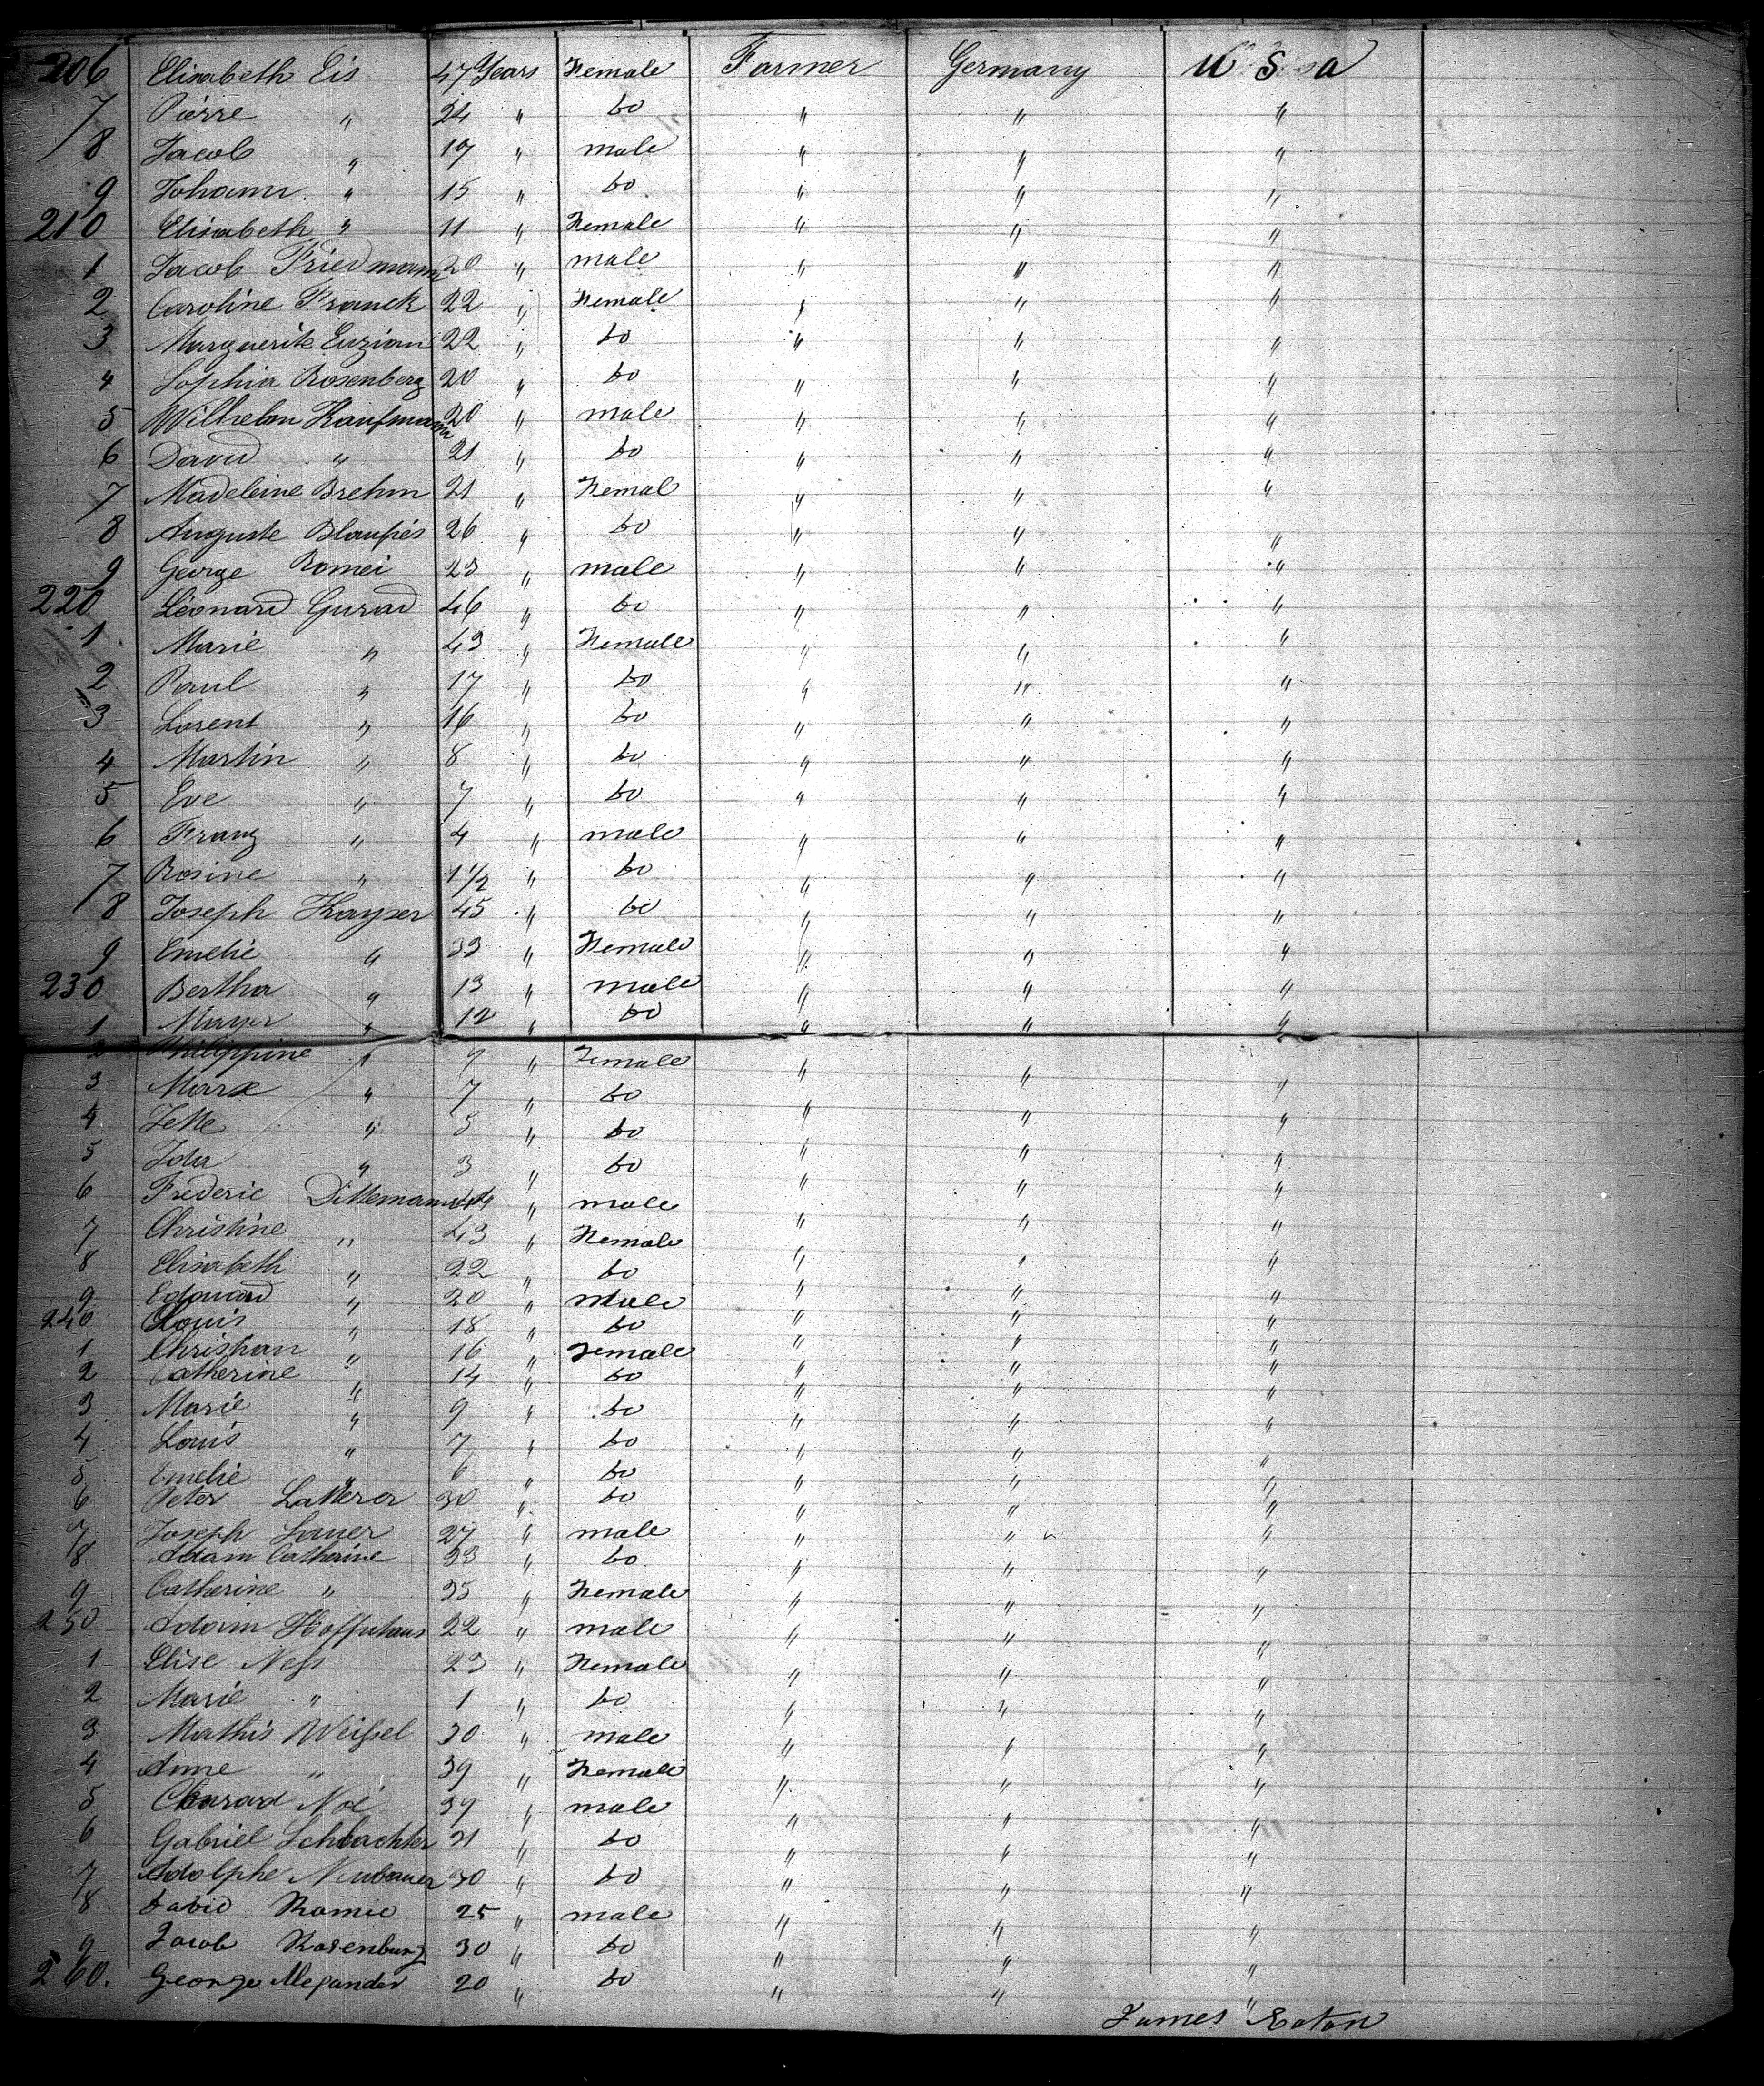 206 Elisabeth Eis 47 Years Female Farmer Germany U S a
7 Pierre " 24 " do " " "
8 Jacob " 17 " male " " "
9 Johann " 15 " do " " "
210 Elisabeth " 11 " Female " " "
1 Jacob Friedmann 20 " male " " "
2 Caroline Franck 22 " Female " " "
3 Marguerite Enzian 22 " do " " "
4 Sophia Rosenberg 20 " do " " "
5 Wilhelm Kaufmann 20 " male " " "
6 David " 21 " do " " "
7 Madeleine Brehm 21 " Femal " " "
8 Auguste Blaupés 26 " do " " "
9 George Romei 23 " male " " "
220 Leonard Gurad 46 " do " " "
1 Marie " 43 " Female " " "
2 Paul " 17 " do " " "
3 Lorent " 16 " do " " "
4 Martin " 8 " do " " "
5 Eve " 7 " do " " "
6 Franz " 4 " male " " "
7 Rosine " 1 1/2 " do " " "
8 Joseph Kayser 45 " do " " "
9 Emelie " 33 " Female " " "
230 Bertha " 13 " male " " "
1 Mayer " 12 " do " " "
2 Philippine " 9 " Female " " "
3 Marx " 7 " do " " "
4 Jette " 5 " do " " "
5 Ida " 3 " do " " "
6 Frederic Dittemann 44 " male " " "
7 Christine " 43 " Female " " "
8 Elisabeth " 22 " do " " "
9 Edouard " 20 " Male " " "
240 Louis " 18 " do " " "
1 Christian " 16 " Female " " "
2 Catherine " 14 " do " " "
3 Marie " 9 " do " " "
4 Louis " 7 " do " " "
5 Emelie " 6 " do " " "
6 Peter Latterer 30 " do " " "
7 Joseph Lauer 27 " male " " "
8 Adam Catherine 33 " do " " "
9 Catherine " 35 " Female " " "
250 Adam Hoffuhaus 22 " male " " "
1 Elise Ness 23 " Female " " "
2 Marie " 1 " do " " "
3 Mathis Weissel 30 " male " " "
4 Anne " 39 " Female " " "
5 Conrad Noé 37 " male " " "
6 Gabriel Schlachter 31 " do " " "
7 Adolphe Neubauer 30 " do " " "
8 David Ramie 25 " male " " "
9 Jacob Rosenburg 30 " do " " "
260. George Alexander 20 " do " " "
James Eaton